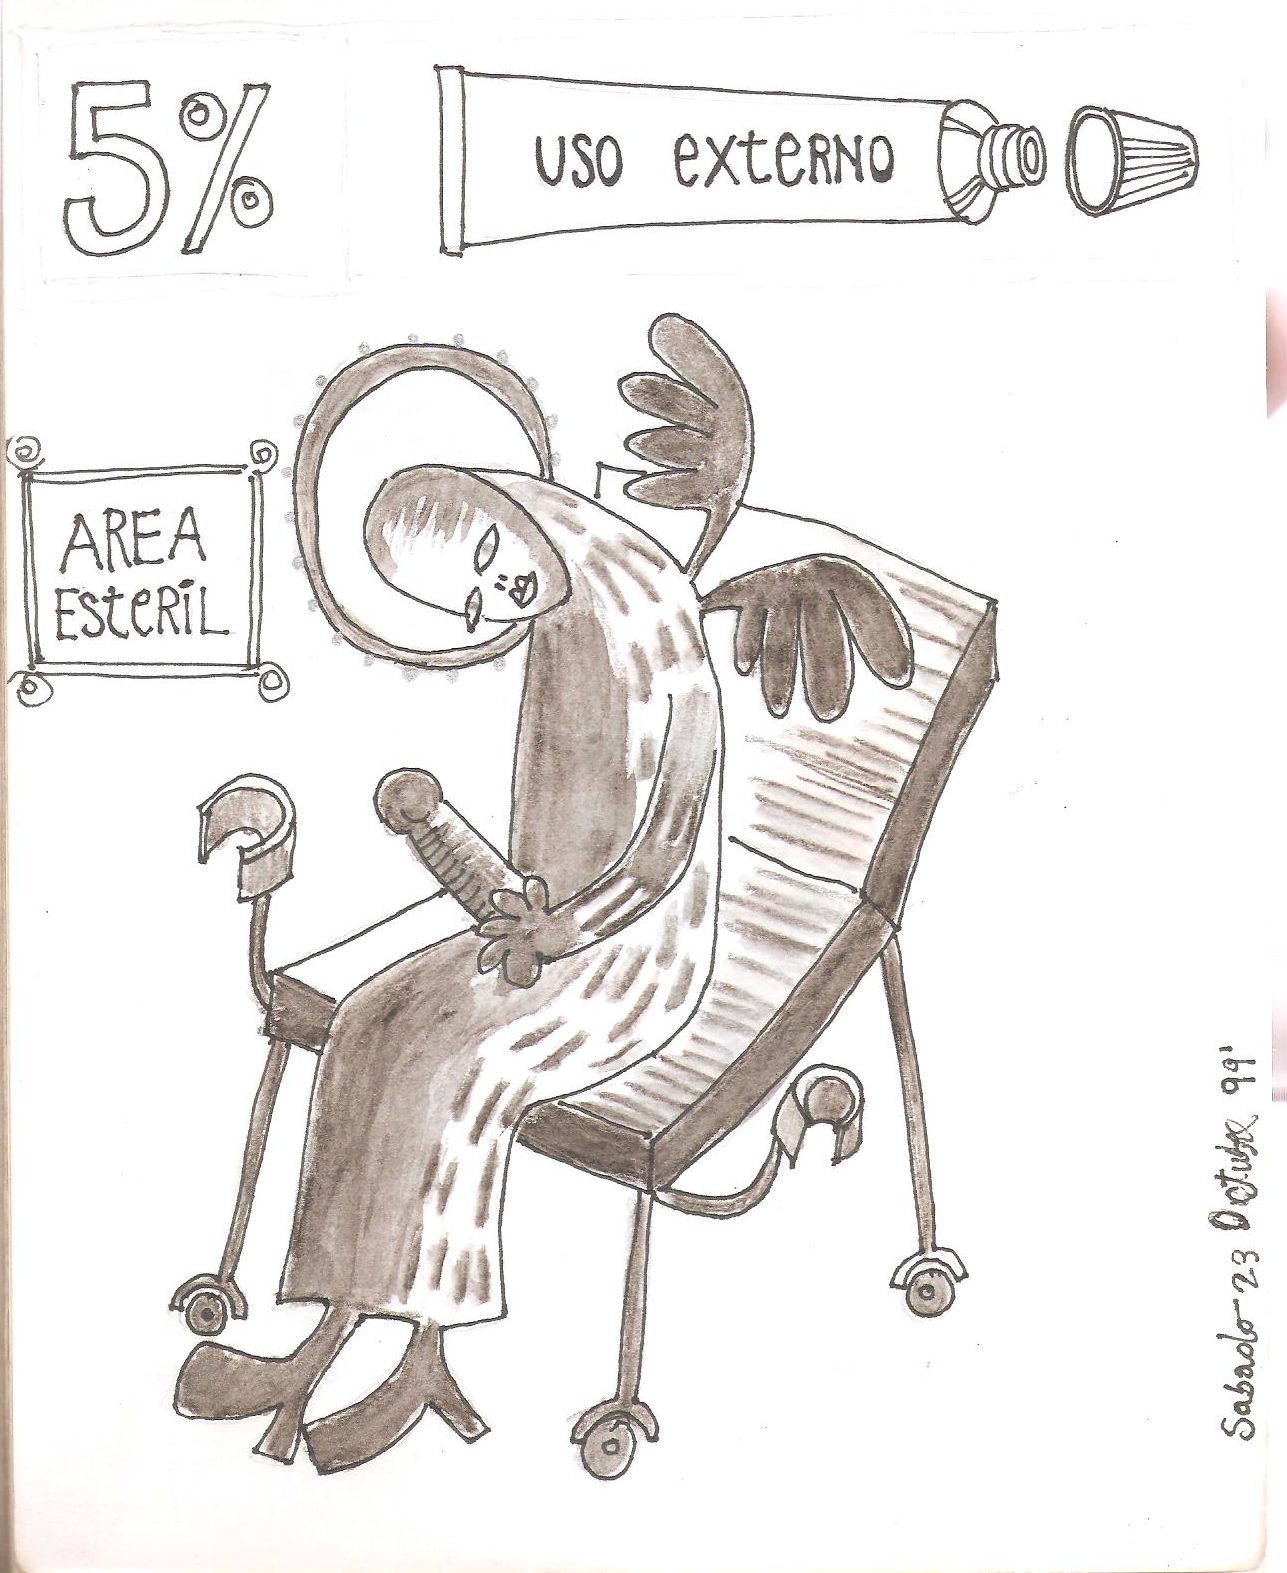 5%
USO EXTERNO
AREA
ESTERIL
Sabado 23 Octubre 99'